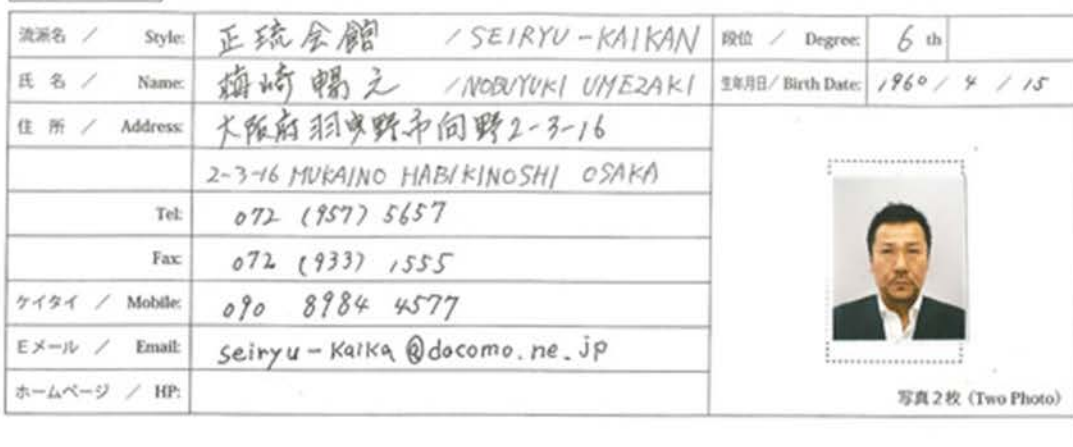 流派名 / Style: 正琉会館 / SEIRYU-KAIKAN 段位 / Degree: 6 th
氏 名 / Name: 梅崎暢之 / NOBUYUKI UMEZAKI 生年月日 / Birth Date: 1960 / 4 / 15
住 所 / Address: 大阪府羽曳野市向野2-3-16
2-3-16 MUKAINO HABIKINOSHI OSAKA
Tel: 072 (957) 5657
Fax: 072 (933) 1555
ケイタイ / Mobile: 090 8984 4577
Eメール / Email: seiryu-kaika@docomo.ne.jp
ホームページ / HP:
写真2枚 (Two Photo)